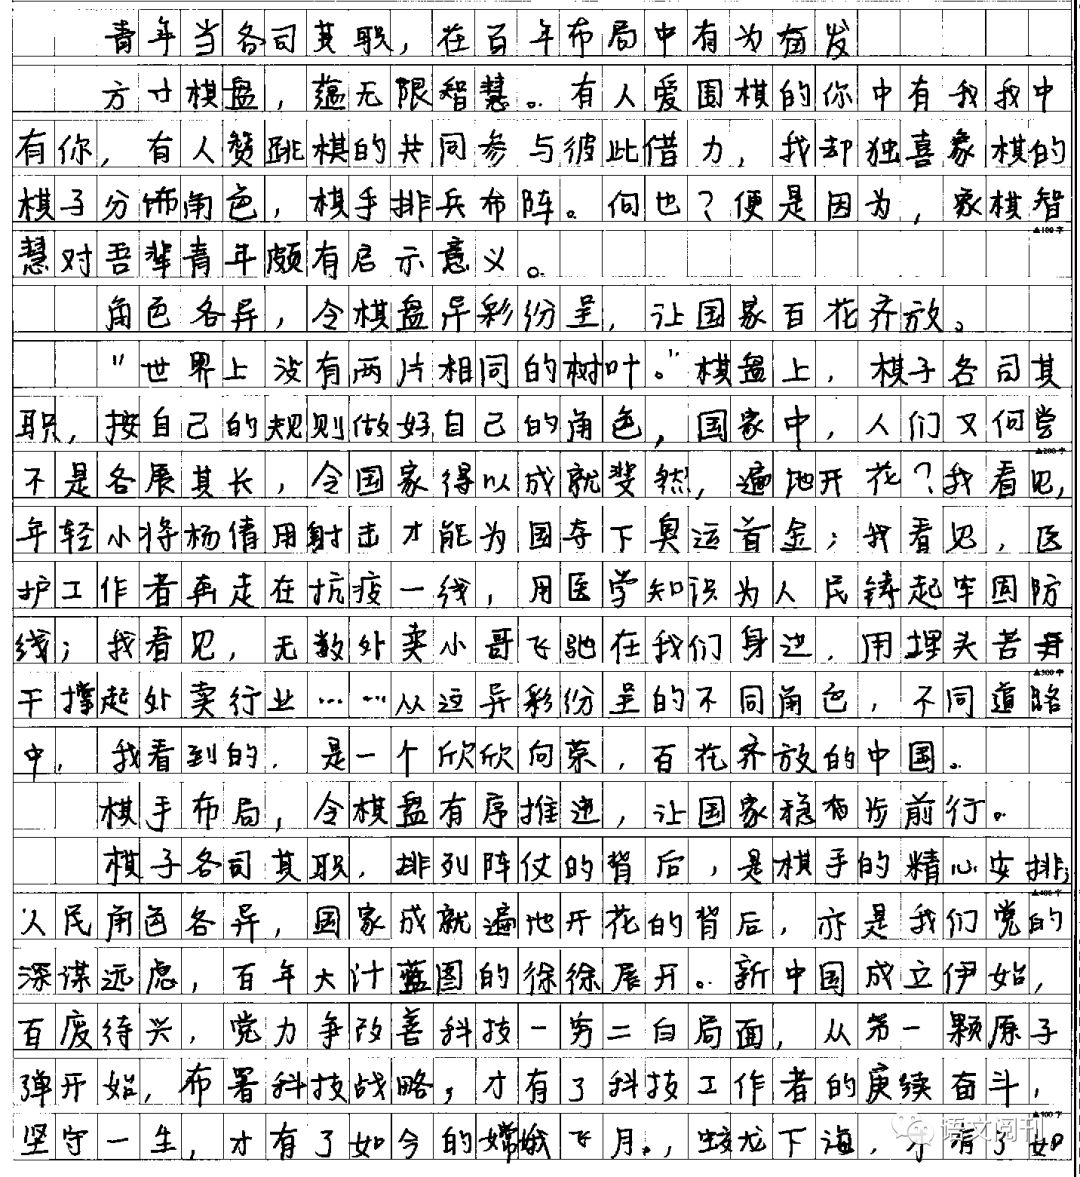 青年当各司其职，在百年布局中有为奋发
方寸棋盘，蕴无限智慧。有人爱围棋的你中有我我中
有你，有人赞跳棋的共同参与彼此借力，我却独喜象棋的
棋子分饰角色，棋手排兵布阵。何也？便是因为，象棋智
▲100字
慧对吾辈青年颇有启示意义。
角色各异，令棋盘异彩纷呈，让国家百花齐放。
“世界上没有两片相同的树叶。”棋盘上，棋子各司其
职，按自己的规则做好自己的角色，国家中，人们又何尝
▲200字
不是各展其长，令国家得以成就斐然，遍地开花？我看见，
年轻小将杨倩用射击才能为国夺下奥运首金；我看见，医
护工作者再走在抗疫一线，用医学知识为人民铸起牢固防
线；我看见，无数外卖小哥飞驰在我们身边，用埋头苦
▲300字
干撑起外卖行业……从这异彩纷呈的不同角色，不同道路
中，我看到的，是一个欣欣向荣，百花齐放的中国。
棋手布局，令棋盘有序推进，让国家稳步前行。
棋子各司其职，排列阵仗的背后，是棋手的精心安排；
▲400字
人民角色各异，国家成就遍地开花的背后，亦是我们党的
深谋远虑，百年大计蓝图的徐徐展开。新中国成立伊始，
百废待兴，党力争改善科技一穷二白局面，从第一颗原子
弹开始，布署科技战略，才有了科技工作者的赓续奋斗，
▲500字
坚守一生，才有了如今的嫦娥飞月，蛟龙下海，才有了如
语文阅刊